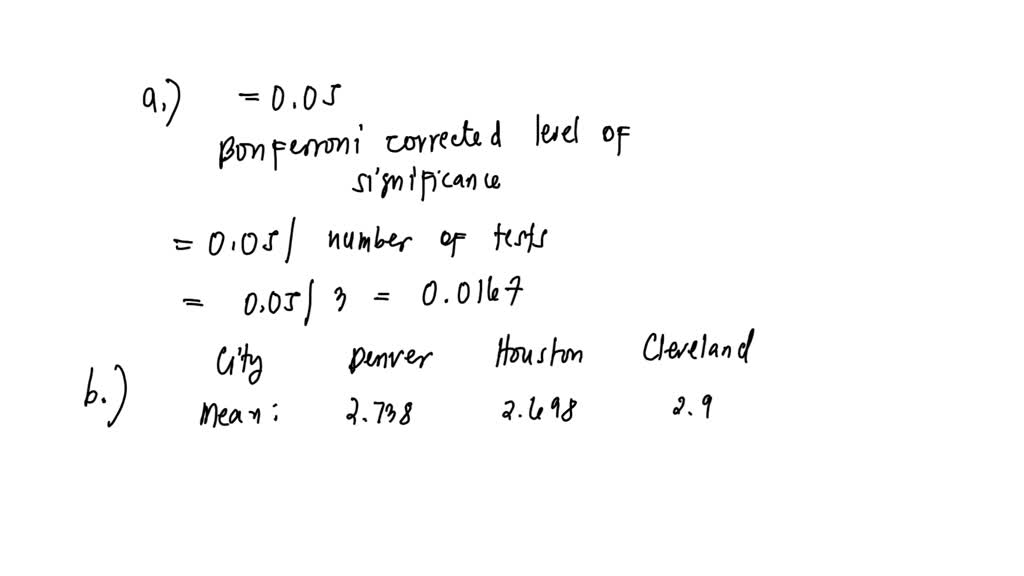 a.) = 0.05
Bonferroni corrected level of
significance
= 0.05/ number of tests
= 0.05/3 = 0.0167
b.) City Denver Houston Cleveland
Mean: 2.738 2.698 2.9